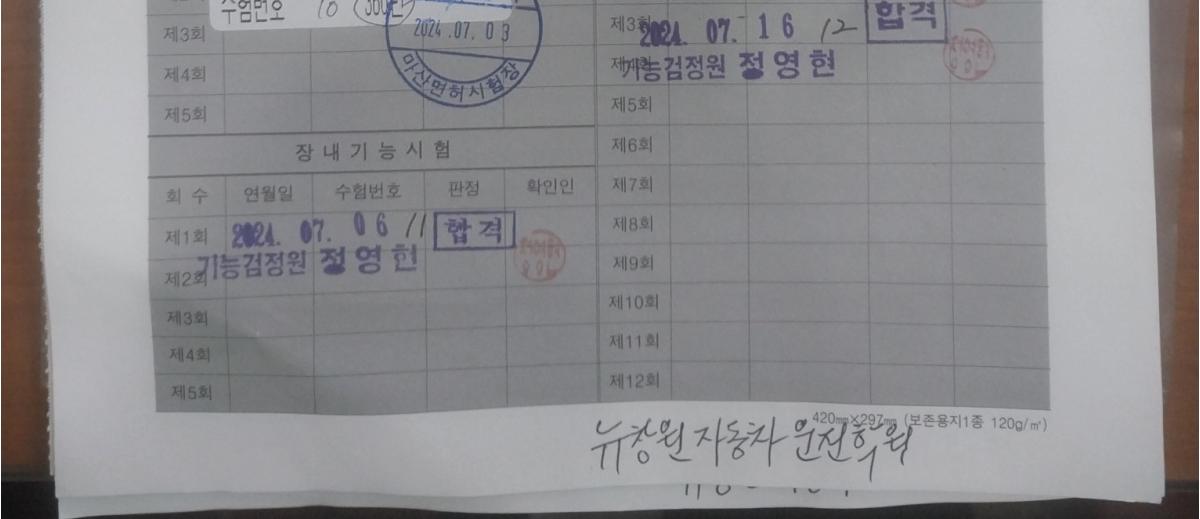 수험번호 10 (360번)
2024.07.03
마산면허시험장
제3회
제4회
제5회
장내기능시험
회수 연월일 수험번호 판정 확인인
제1회 2024. 07. 06 11 합격
제2회 기능검정원 정영현
제3회
제4회
제5회
제3회 2024. 07. 16 12 합격
제4회 기능검정원 정영현
제5회
제6회
제7회
제8회
제9회
제10회
제11회
제12회
420㎜×297㎜ (보존용지1종 120g/㎡)
뉴창원자동차운전학원